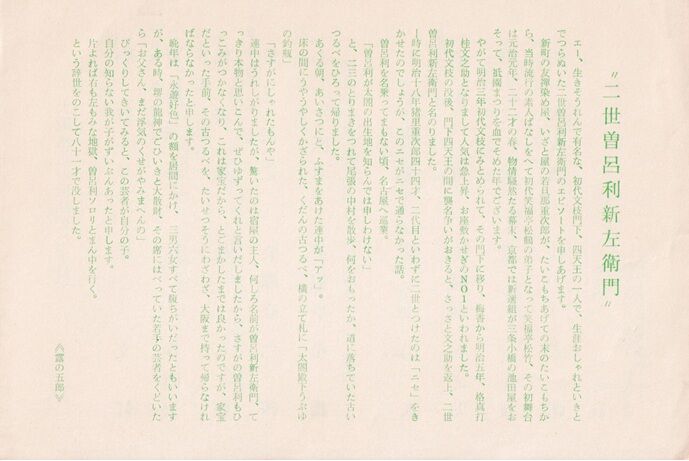 〝二世曽呂利新左衛門〟
エー、生きそうれんで有名な、初代文枝門下、四天王の一人で、生涯おしゃれといきと
でつらぬいた二世曽呂利新左衛門のエピソートを申しあげます。
新町の友禅染め屋、いさき屋の若旦那重次郎が、たいこもちあげての末のたいこもちか
ら、当時流行の素人ばなしをへて初代笑福亭松鶴の弟子となって笑福亭松竹、その初舞台
は元治元年、二十二才の春、物情騒然たる幕末、京都では新選組が三条小橋の池田屋をお
そって、祇園まつりを血でそめた年でございます。
やがて明治三年初代文枝にみとめられて、その門下に移り、梅香から明治五年、格真打
桂文之助となりまして人気は急上昇、お座敷かせぎのNO1といわれました。
初代文枝の没後、門下四天王の間に襲名争いがおきると、さっさと文之助を返上、二世
曽呂利新左衛門と名のりました。
時に明治十八年猪里重次郎四十四才、二代目といわずに二世とつけたのは「ニセ」をき
かせたのでしょうが、このニセがニセで通らなかった話。
曽呂利を名乗ってまもない頃、名古屋へ巡業。
「曽呂利が太閤の出生地を知らんでは申しわけない」
と、二三のとりまきをつれて尾張の中村を散歩、何をおもったか、道に落ちていた古い
つるべをひろって帰りました。
あくる朝、あいさつにと、ふすまをあけた連中が「アッ」。
床の間にうやうやしくかざられた、くだんの古つるべ、横の立て札に「太閤殿下うぶゆ
の釣瓶」
「さすがにしゃれたもんや」
連中はうれしがりましたが、驚いたのは宿屋の主人、何しろ名前が曽呂利新左衛門、て
っきり本物と思いこんで、ぜひゆずってくれと言いだしましたから、さすがの曽呂利もひ
っこみがつかなくなり、これは家宝だから、とごまかしたまでは良かったのですが、家宝
だといった手前、その古つるべを、たいせつそうにわざわざ、大阪まで持って帰らなけれ
ばならなかったと申します。
晩年は、「永善好色」の額を居間にかけ、三男六女すべて腹ちがいだったともいいます
が、ある時、堺の龍神でごひいきと大散財、その席にはべっていた若手の芸者をくどいた
ら「お父さん、まだ浮気のくせがやみまへんの」
びっくりしてきいてみると、この芸者が自分の子。
自分の知らない我が子がずいぶんあったと申します。
片よれば右も左もみな地獄、曽呂利ソロリとまん中を行く。
という辞世をのこして八十一才で没しました。
《露の五郎》